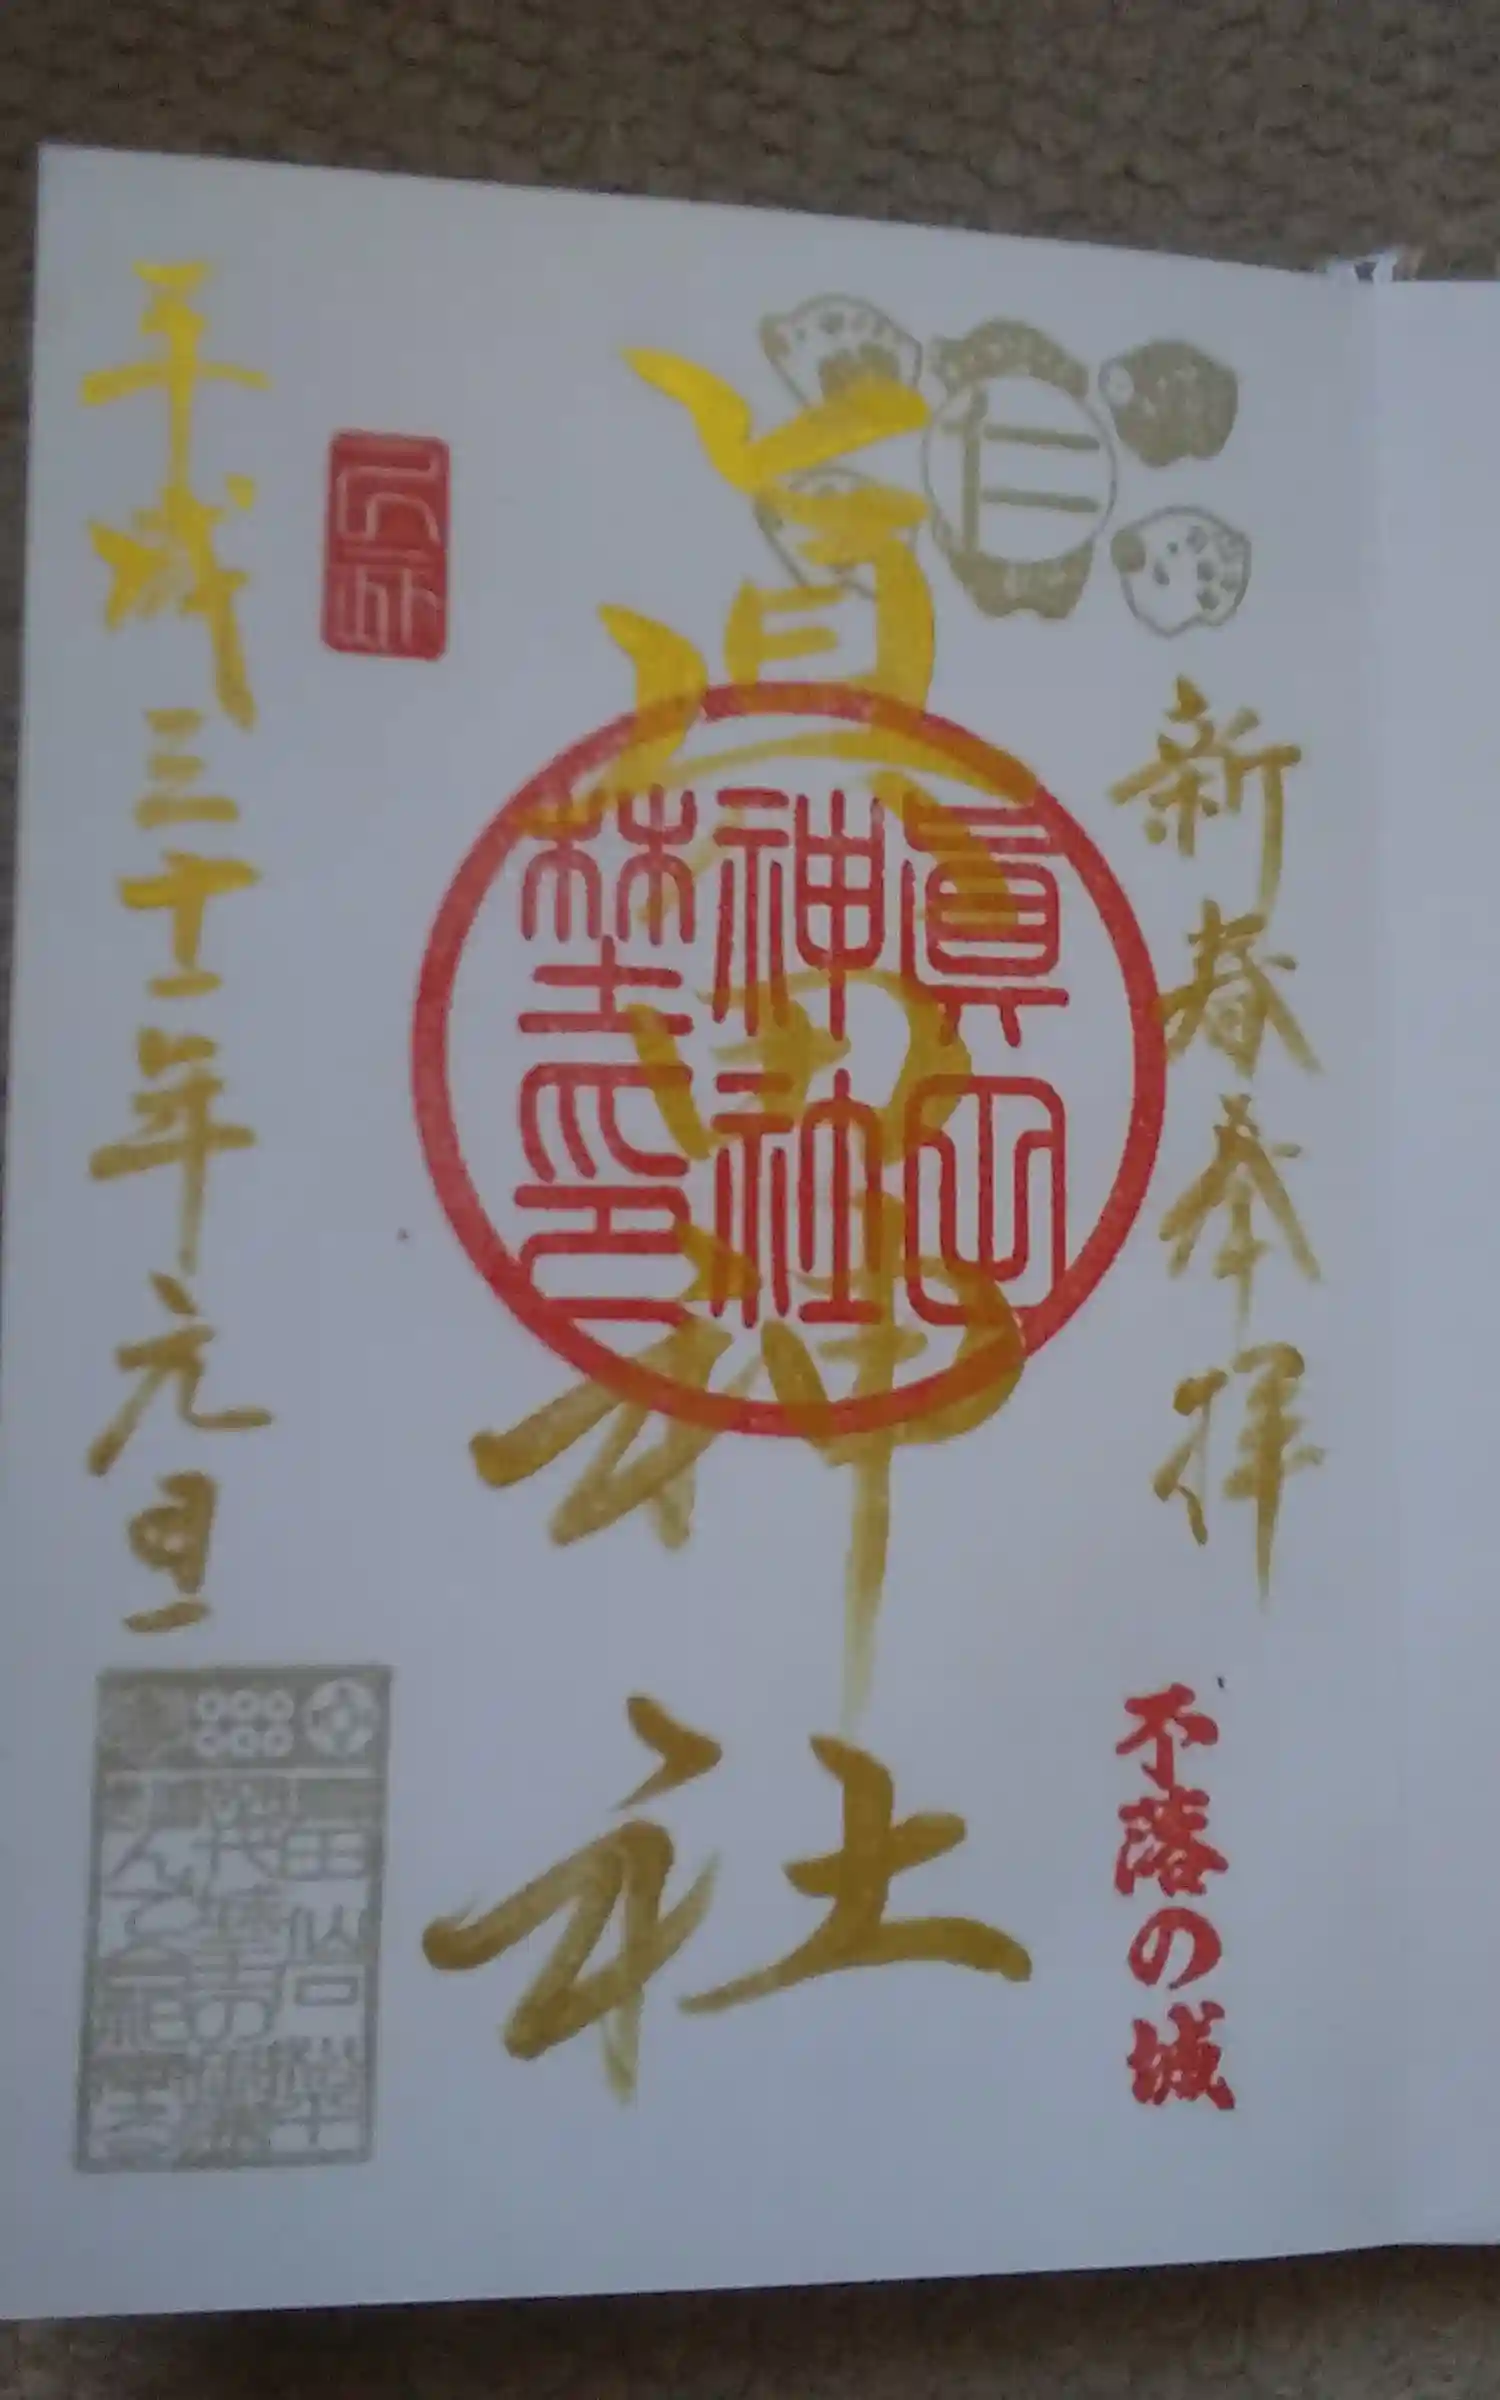 仁
新春奉拝
不落の城
眞田神社
眞田
神社
埜印
平成三十一年元旦